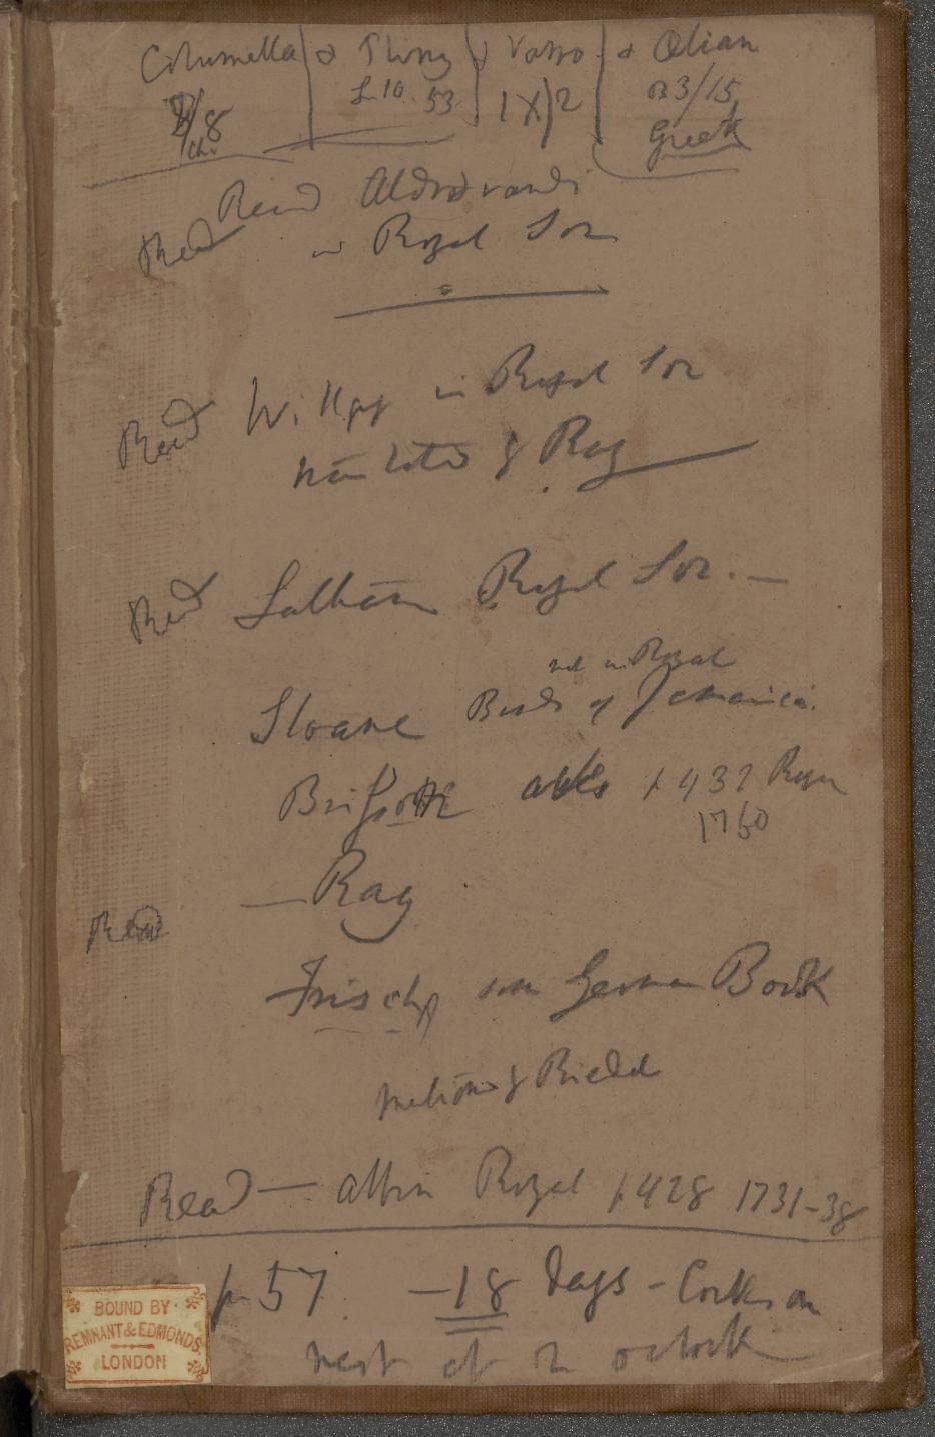 Columella & Pliny & Varro & Ælian
8 L. 10. 53 IX)2 3/15
ch. Greek
Read Read Aldrovandi
in Royal Soc
Read Willgy in Royal Soc
translated by Ray
Read Latham Royal Soc. —
not in Royal
Sloane Birds of Jamaica.
Brisson p 432
1760
— Ray
Read
Frisch German Book
Read — Albin Royal p 428 1731-38
p 57. — 18 Days —
nest at o'clock
BOUND BY
REMNANT & EDMONDS
LONDON